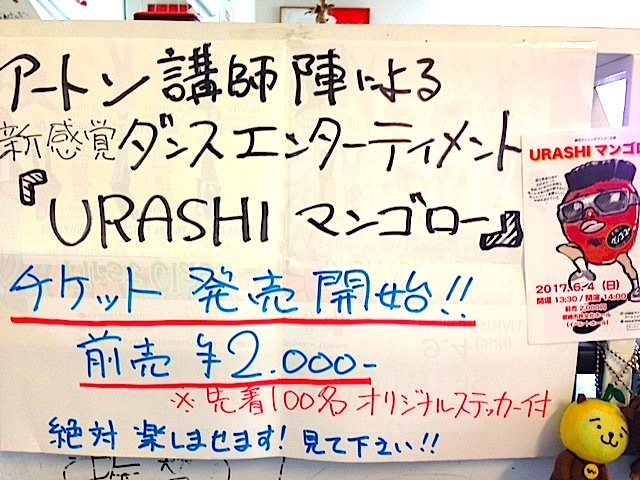 アートン講師陣による
新感覚ダンスエンターティメント
『URASHI マンゴロー』
チケット発売開始!!
前売 ¥2.000-
※先着100名オリジナルステッカー付
絶対楽しませます! 見て下さい!!
URASHI マンゴロ
2017.6.4 (日)
開場 13:30 / 開演 14:00
前売 2,000円